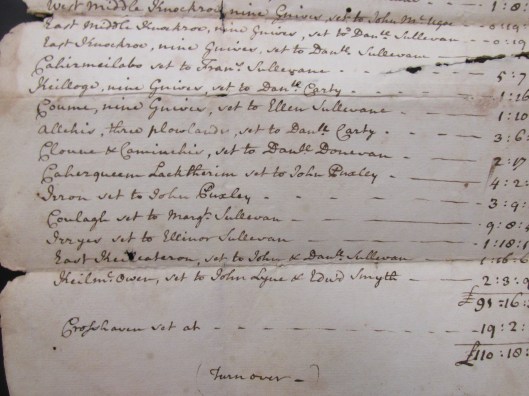 West Middle Knockroe, nine Gnives set to John 1:8
East Middle Knockroe, nine Gnives, set to Danll. Sullevan 0:19
East Knockroe, nine Gnives, set to Danll. Sullevan
Cahirmeilabo set to Frans. Sullevane 5:7
Keilloge, nine Gnives, set to Danll. Carty 1:16
Coume, nine Gnives, set to Ellen Sullevane 1:10
Allehis, three plowlands, set to Danll. Carty 3:6
Clonee & Caminchis, set to Danll. Donevan 2:17
Caherqueem Lacktherim set to John Puxley 4:2
Irron set to John Puxley 3:9
Coulagh set to Margt. Sullevan 9:8
Irryes set to Ellinor Sullevan 1:18
East set to John & Danll. Sullevan 1:16:6
Keilmc.Owen, set to John Lyne & Edwd Smyth 2:3:9
£91:16
Crosshaven set at 19:2
£110:18
(Turn over)